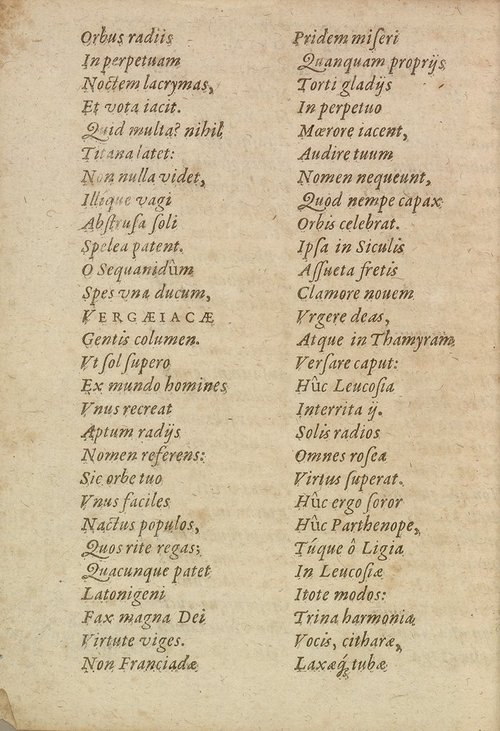 Orbus radiis
In perpetuam
Noctem lacrymas,
Et vota iacit.
Quid multa? nihil
Titana latet:
Non nulla videt,
Illique vagi
Abſtruſa ſoli
Spelea patent.
O Sequanidûm
Spes vna ducum,
VERGÆIACÆ
Gentis columen.
Vt ſol ſupero
Ex mundo homines
Vnus recreat
Aptum radijs
Nomen referens:
Sic orbe tuo
Vnus faciles
Nactus populos,
Quos rite regas;
Quacunque patet
Latonigeni
Fax magna Dei
Virtute viges.
Non Franciadæ
Pridem miſeri
Quanquam proprijs
Torti gladijs
In perpetuo
Mœrore iacent,
Audire tuum
Nomen nequeunt,
Quod nempe capax
Orbis celebrat.
Ipſa in Siculis
Aſſueta fretis
Clamore nouem
Vrgere deas,
Atque in Thamyram
Verſare caput:
Hûc Leucoſia
Interrita ij.
Solis radios
Omnes roſea
Virtus ſuperat.
Hûc ergo ſoror
Hûc Parthenope,
Túque ô Ligia
In Leucoſiæ
Itote modos:
Trina harmonia
Vocis, citharæ,
Laxæq́; tubæ